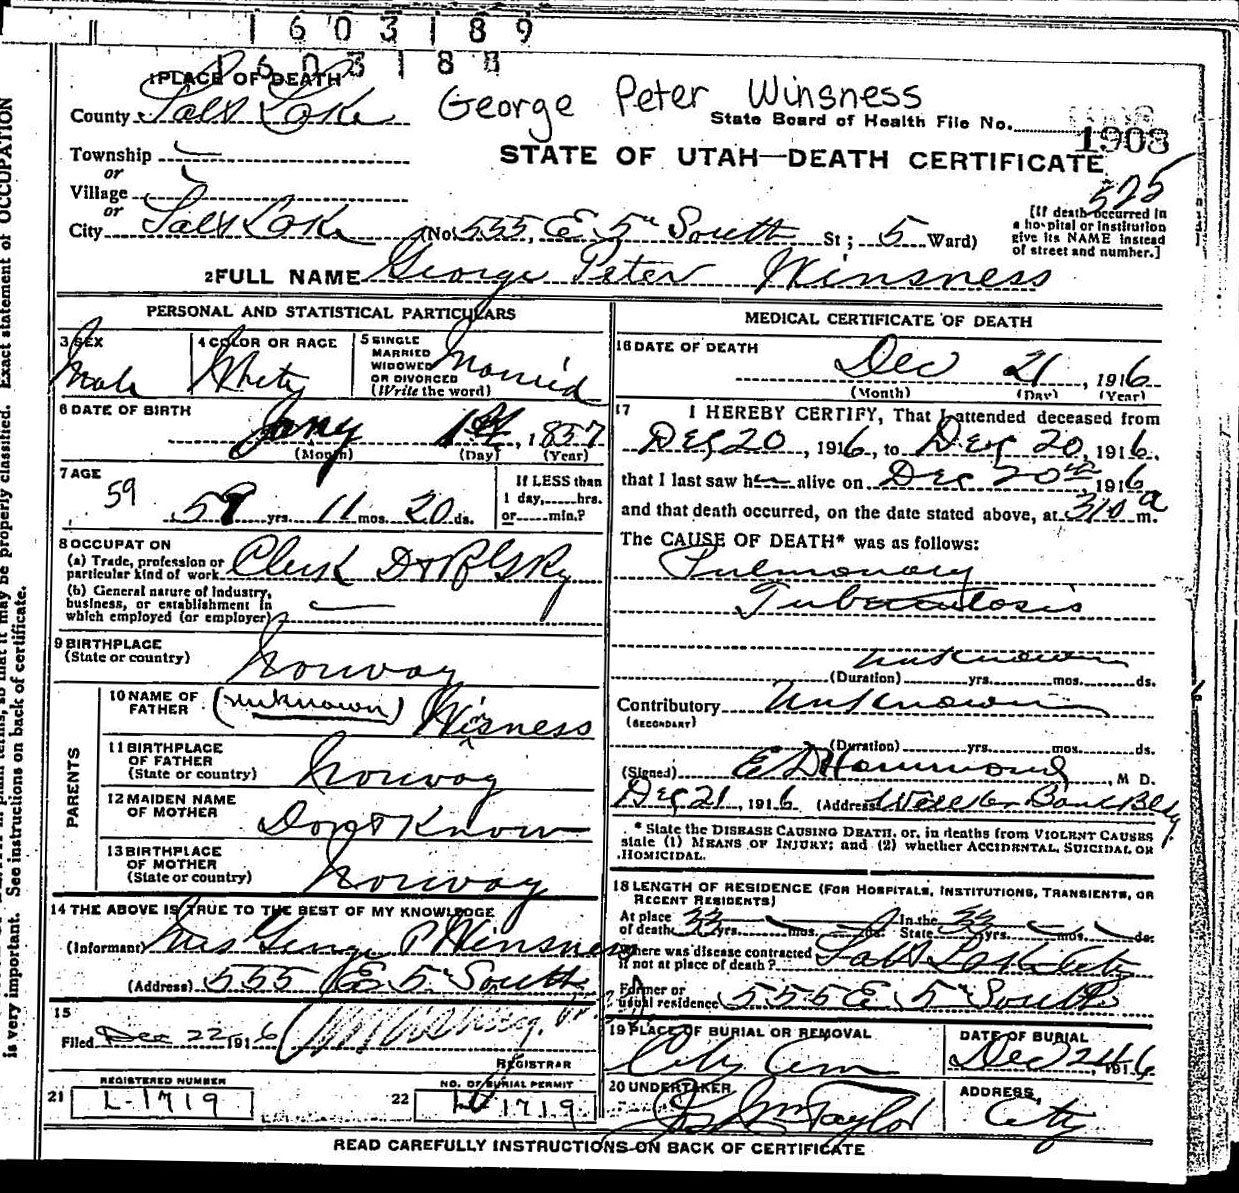 1603189
160318
1 PLACE OF DEATH
County Salt Lake
George Peter Winsness
State Board of Health File No. 1908
Township
STATE OF UTAH—DEATH CERTIFICATE
or
Village
525
or
City Salt Lake (No. 555, E 5th South St; 5 Ward)
[If death occurred in a hospital or institution give its NAME instead of street and number.]
2 FULL NAME George Peter Winsness
PERSONAL AND STATISTICAL PARTICULARS
3 SEX Male
4 COLOR OR RACE White
5 SINGLE MARRIED WIDOWED OR DIVORCED (Write the word) Married
6 DATE OF BIRTH
Jany 1st, 1857
(Month) (Day) (Year)
7 AGE
59
59 yrs. 11 mos. 20 ds.
If LESS than 1 day,......hrs. or......min.?
8 OCCUPATION
(a) Trade, profession or particular kind of work Clerk D&R G Ry
(b) General nature of industry, business, or establishment in which employed (or employer)
9 BIRTHPLACE
(State or country) Norway
PARENTS
10 NAME OF FATHER (unknown) Winsness
11 BIRTHPLACE OF FATHER (State or country) Norway
12 MAIDEN NAME OF MOTHER Don't Know
13 BIRTHPLACE OF MOTHER (State or country) Norway
14 THE ABOVE IS TRUE TO THE BEST OF MY KNOWLEDGE
(Informant) Mrs George P Winsness
(Address) 555 E 5th South
15
Filed Dec 22 1916
REGISTRAR
REGISTERED NUMBER
21 L-1719
NO. OF BURIAL PERMIT
22 1719
MEDICAL CERTIFICATE OF DEATH
16 DATE OF DEATH
Dec 21, 1916
(Month) (Day) (Year)
17 I HEREBY CERTIFY, That I attended deceased from
Dec 20, 1916, to Dec 20, 1916,
that I last saw h alive on Dec 20th 1916
and that death occurred, on the date stated above, at 310 a m.
The CAUSE OF DEATH* was as follows:
Pulmonary
Tuberculosis
unknown
(Duration) yrs. mos. ds.
Contributory Unknown
(SECONDARY)
(Duration) yrs. mos. ds.
(Signed) E D Hammond, M D.
Dec 21, 1916 (Address) Walker Bank Bldg
* State the DISEASE CAUSING DEATH, or, in deaths from VIOLENT CAUSES
state (1) MEANS OF INJURY; and (2) whether ACCIDENTAL, SUICIDAL OR
HOMICIDAL.
18 LENGTH OF RESIDENCE (FOR HOSPITALS, INSTITUTIONS, TRANSIENTS, OR
RECENT RESIDENTS)
At place of death 33 yrs. mos. ds. In the State 33 yrs. mos. ds.
Where was disease contracted if not at place of death? Salt Lake City
Former or usual residence 555 E 5th South
19 PLACE OF BURIAL OR REMOVAL
City Cem
DATE OF BURIAL
Dec 24 1916
20 UNDERTAKER
Jos Wm Taylor
ADDRESS
City
READ CAREFULLY INSTRUCTIONS ON BACK OF CERTIFICATE
may be properly classified. Exact statement of OCCUPATION
is very important. See instructions on back of certificate.